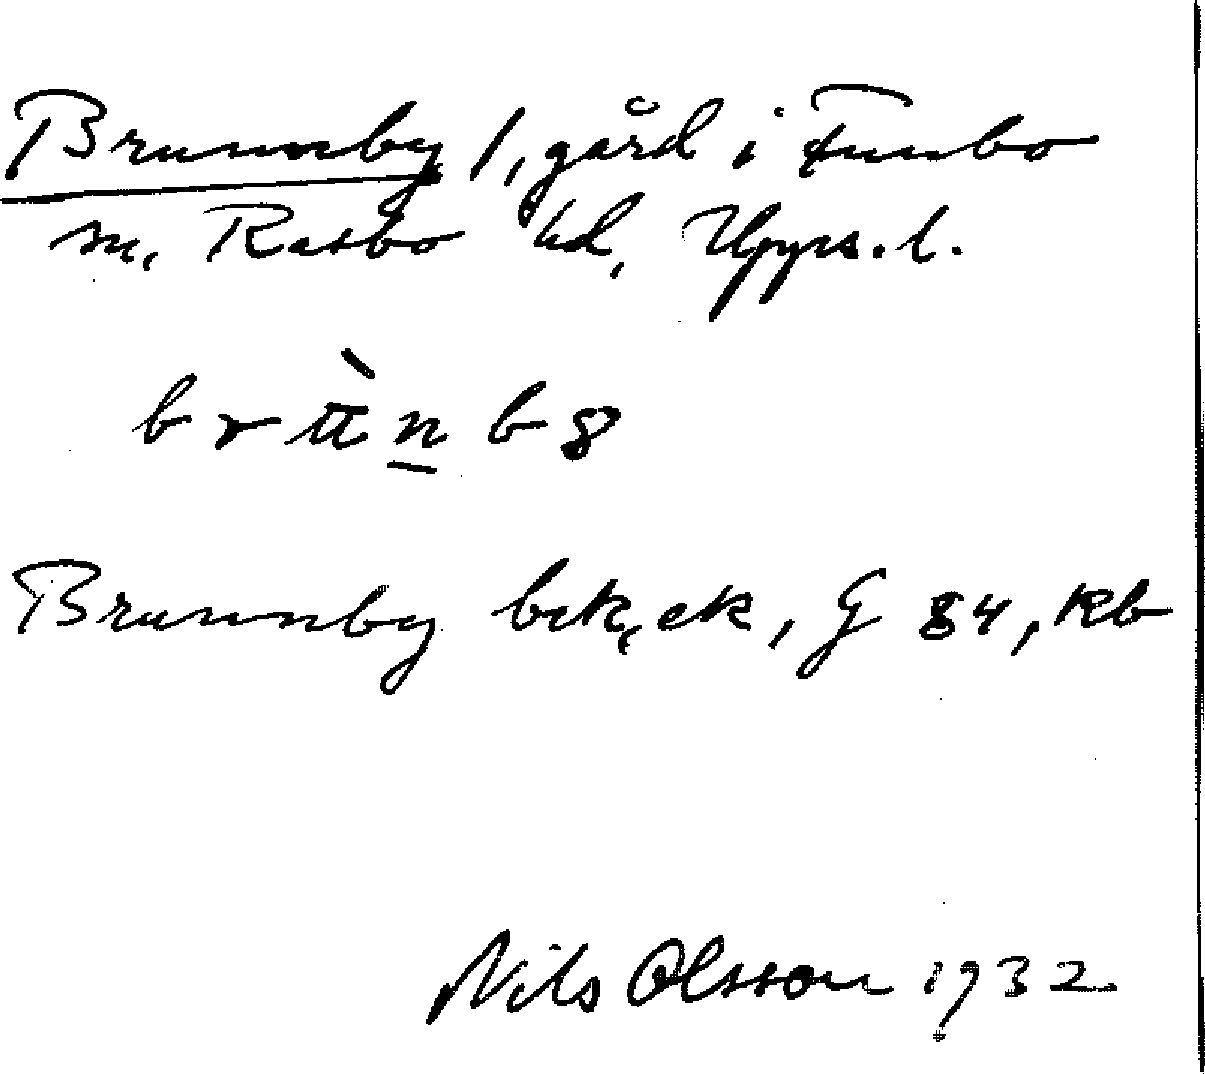 Brunnby 1, gård i Funbo
sn, Rasbo hd, Upps. l.
Brunnby bek, ek, G 84, Kb
Nils Olsson 1932